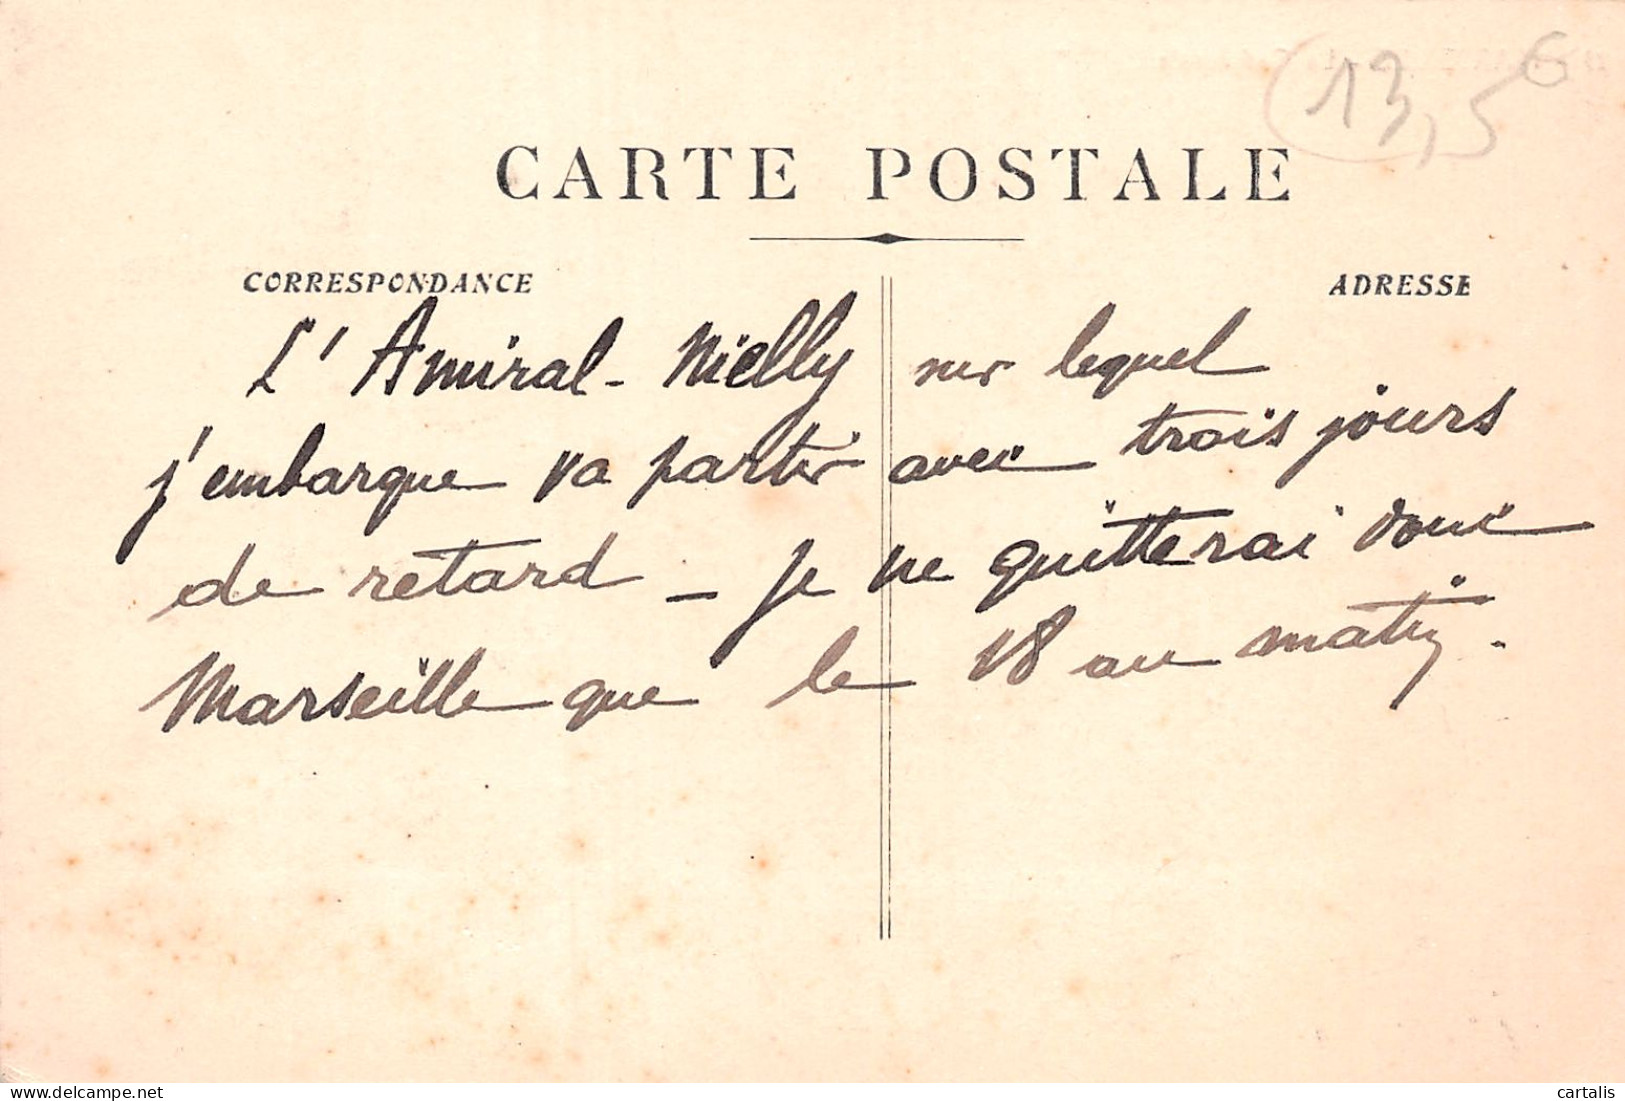 13,5 €
CARTE POSTALE
CORRESPONDANCE
ADRESSE
L'Amiral-Nielly sur lequel
j'embarque va partir avec trois jours
de retard _ je ne quitterai donc
Marseille que le 18 au matin.
cartalis